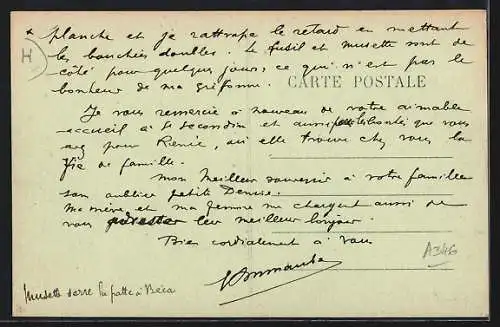 * planche et je rattrape le retard en mettant
les bouchées doubles. Le fusil et musette sont de
côté pour quelques jours, ce qui n'est pas le
bonheur de ma griffonne.
CARTE POSTALE
Je vous remercie à nouveau de votre aimable
accueil à St Secondin et aussi les bontés que vous
avez pour Renée, qui elle trouve chez vous la
Vie de famille.
Mon meilleur souvenir à votre famille
san oublier petite Denise.
Ma mère et ma femme me chargent aussi de
vous adresser leur meilleur bonjour.
Bien cordialement à vous
A346
Musette serre la patte à Béca
H